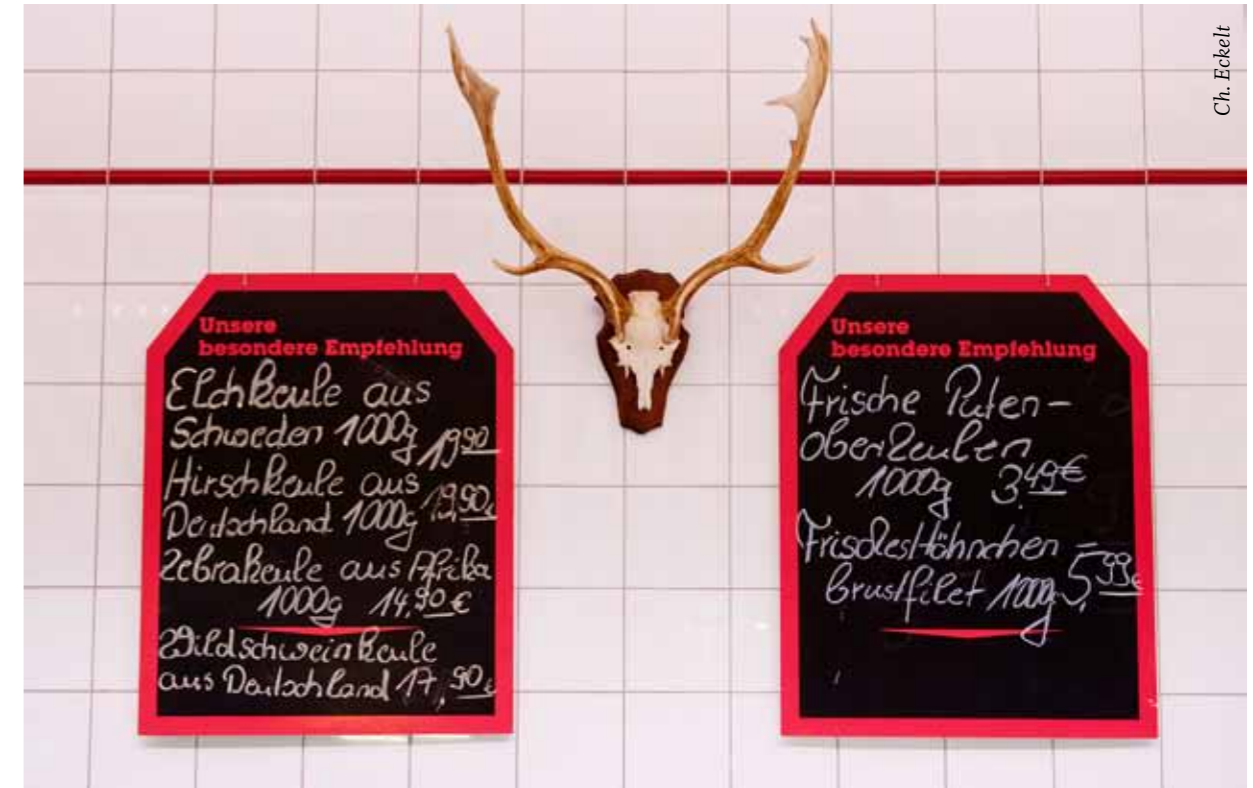 Ch. Eckelt
Unsere
besondere Empfehlung
Elchkeule aus
Schweden 1000g 19,90
Hirschkeule aus
Deutschland 1000g 19,90€
Zebrakeule aus Afrika
1000g 14,90€
Wildschweinkeule
aus Deutschland 17,90€
Unsere
besondere Empfehlung
Frische Puten-
oberkeulen
1000g 3,49€
Frisches Hähnchen-
brustfilet 1000g 5,99€